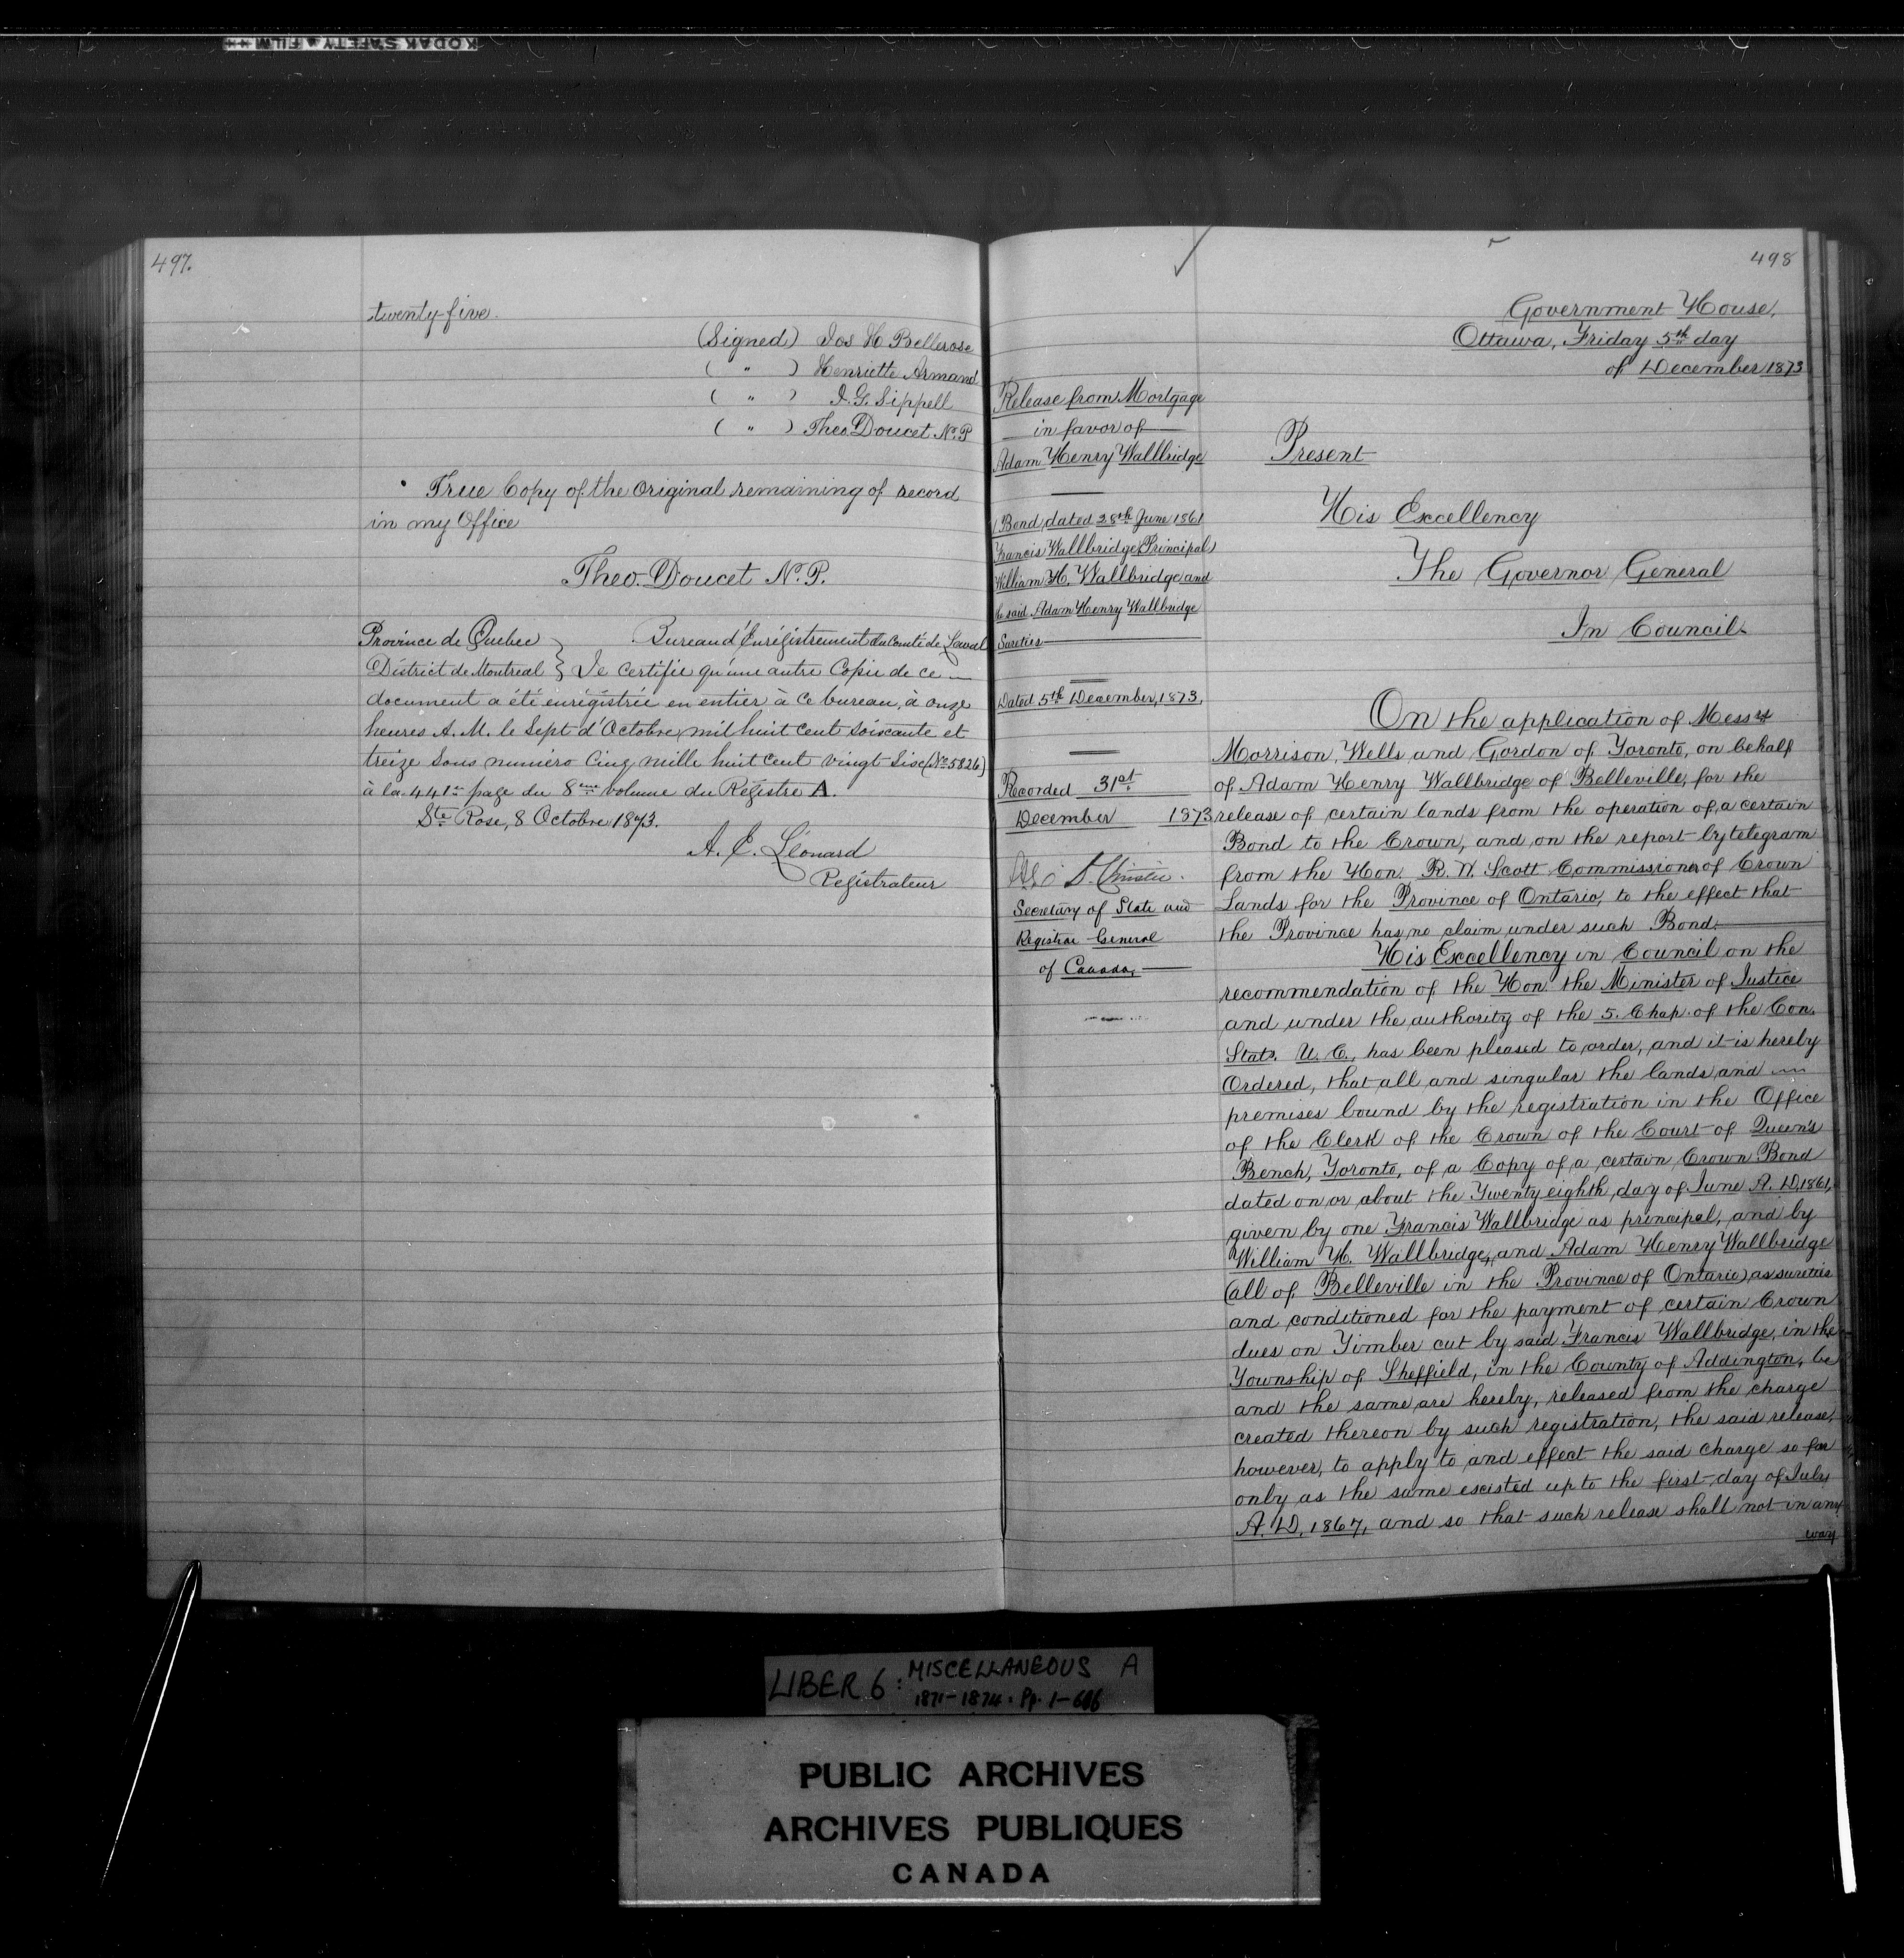 KODAK SAFETY FILM
497.
twenty-five.
(Signed) Jos H Bellerose
( " ) Henriette Armand
( " ) J. G. Sippell
( " ) Theo. Doucet N. P
True Copy of the Original remaining of record
in my Office
Theo. Doucet N. P.
Province de Quebec } Bureau d'Enrégistrement du Comté de Laval
District de Montreal } Je Certifie qu'une autre Copie de ce
document a été enrégistrée en entier à ce bureau, à onze
heures A. M. le Sept d'Octobre, mil huit cent soixante et
treize sous numéro Cinq mille huit cent vingt Six (No. 5826)
à la 441e page du 8eme volume du Régistre A.
Ste Rose, 8 Octobre 1873.
A. E. Léonard
Registrateur
498
Release from Mortgage
in favor of
Adam Henry Wallbridge
(Bond dated 28th June 1861
Francis Wallbridge (Principal)
William H. Wallbridge and
said Adam Henry Wallbridge
Sureties
Dated 5th December, 1873.
Recorded 31st
December 1873
Secretary of State and
Registrar General
of Canada,
Government House,
Ottawa, Friday 5th day
of December 1873
Present
His Excellency
The Governor General
In Council.
On the application of Messrs
Morrison, Wells and Gordon of Toronto, on behalf
of Adam Henry Wallbridge of Belleville, for the
release of certain lands from the operation of, a certain
Bond to the Crown, and on the report by telegram
from the Hon. R. W. Scott Commissioner of Crown
Lands for the Province of Ontario, to the effect that
the Province has, no claim under such Bond.
His Excellency in Council on the
recommendation of the Hon. the Minister of Justice
and under the authority of the 5. Chap. of the Con.
Stats. U. C., has been pleased to order, and it is hereby
Ordered, that all and singular the lands and
premises bound by the registration in the Office
of the Clerk of the Crown of the Court of Queen's
Bench, Toronto, of a Copy of a certain Crown Bond
dated on or about the Twenty eighth day of June A. D. 1861,
given by one Francis Wallbridge as principal, and by
William H. Wallbridge, and Adam Henry Wallbridge
(all of Belleville in the Province of Ontario) as sureties
and conditioned for the payment of certain Crown
dues on Timber cut by said Francis Wallbridge, in the
Township of Sheffield, in the County of Addington, be
and the same are hereby, released from the charge
created thereon by such registration, the said release,
however, to apply to and effect the said charge so far
only as the same existed up to the first day of July
A. D. 1867, and so that such release shall not in any
way
LIBER 6: MISCELLANEOUS A
1871-1874. Pp. 1-606
PUBLIC ARCHIVES
ARCHIVES PUBLIQUES
CANADA